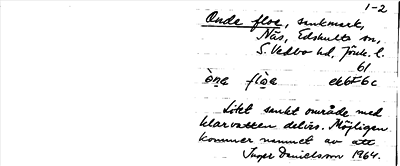 1-2
Onde floe, sankmark,
Näs, Edshults sn,
S. Vedbo hd, Jönk. l.
61
òne flòe ek6F6c
Litet sankt område med
klarvatten delvis. Möjligen
kommer namnet av att
Inger Danielsson 1964.